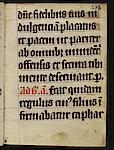 dne fidelibus tuis in
dulgenciam placatus
et pacem ut pariter
ab omnibus mundent
offensis et secura tibi
mente deserviant. p.
Erat quidam
regulus cui(us) filius i(n)
firmabatur caphar